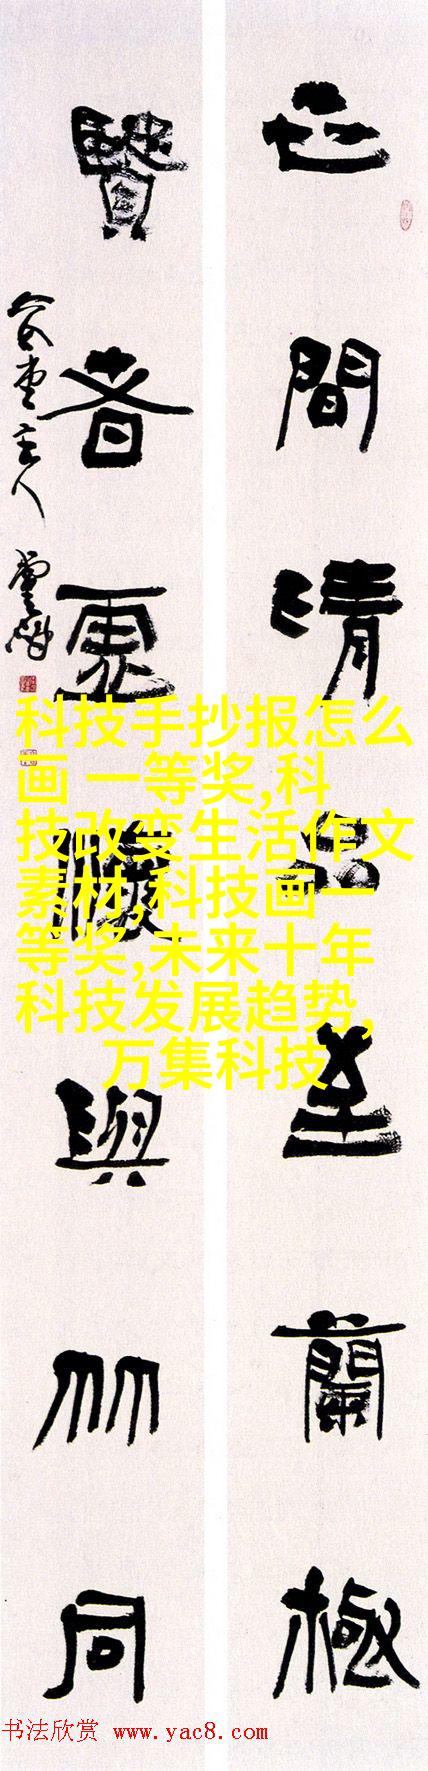 世間清品至蘭極
賢者虛懷與竹同
主人
科技手抄报怎么
画 一等奖,科
技改变生活作文
素材,科技画一
等奖,未来十年
科技发展趋势,
万集科技
书法欣赏 www.yac8.com